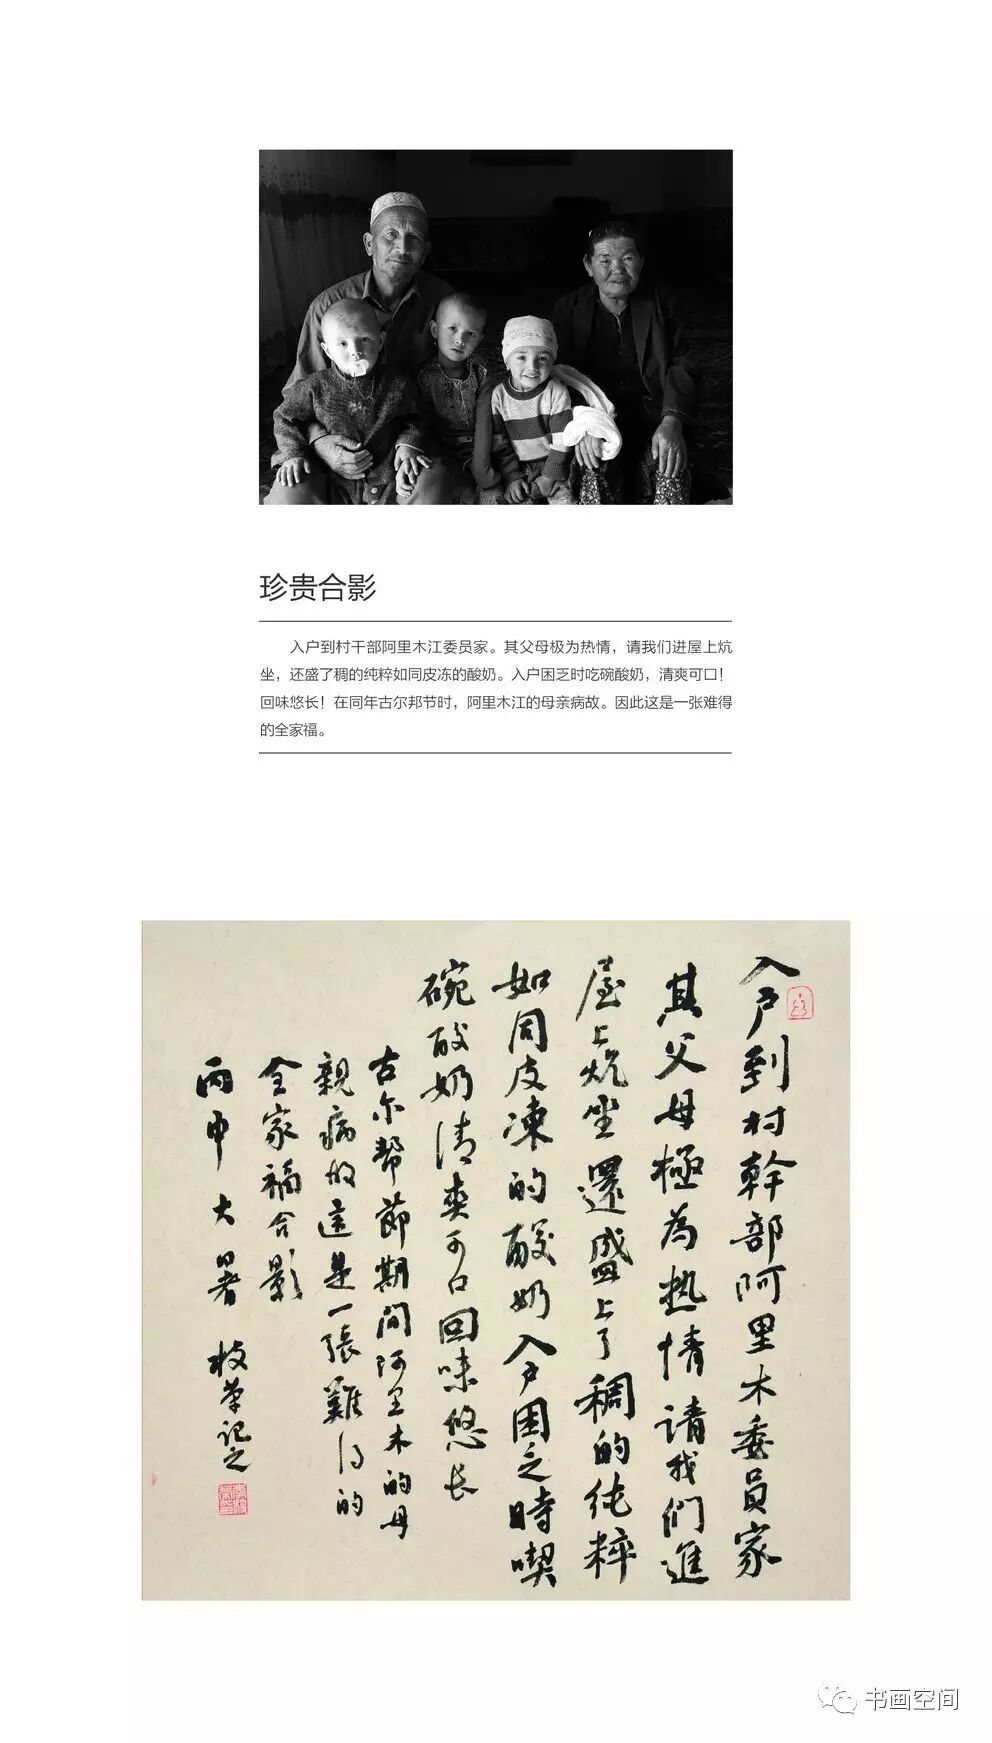 珍贵合影
入户到村干部阿里木江委员家。其父母极为热情，请我们进屋上炕
坐，还盛了稠的纯粹如同皮冻的酸奶。入户困乏时吃碗酸奶，清爽可口！
回味悠长！在同年古尔邦节时，阿里木江的母亲病故。因此这是一张难得
的全家福。
入户到村幹部阿里木委員家
其父母極為热情请我们進
屋上炕坐還盛上了稠的纯粹
如同皮凍的酸奶入户困乏時喫
碗酸奶清爽可口回味悠长
古尔幇節期间阿里木的母
親病故這是一張難得的
全家福合影
丙申大暑 枝荣记之
书画空间